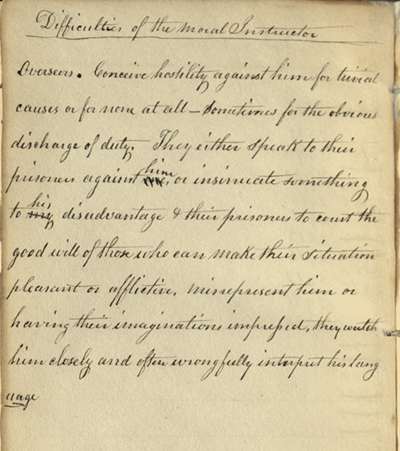 Difficulties of the Moral Instructor
Overseers. Conceive hostility against him for trivial
causes or for none at all – Sometimes for the obvious
discharge of duty. They either speak to their
prisoners against him, or insinuate something
to his disadvantage & their prisoners to court the
good will of those who can make their situation
pleasant or afflictive, misrepresent him or
having their imaginations impressed, they watch
him closely and often wrongfully interpret his lang
uage